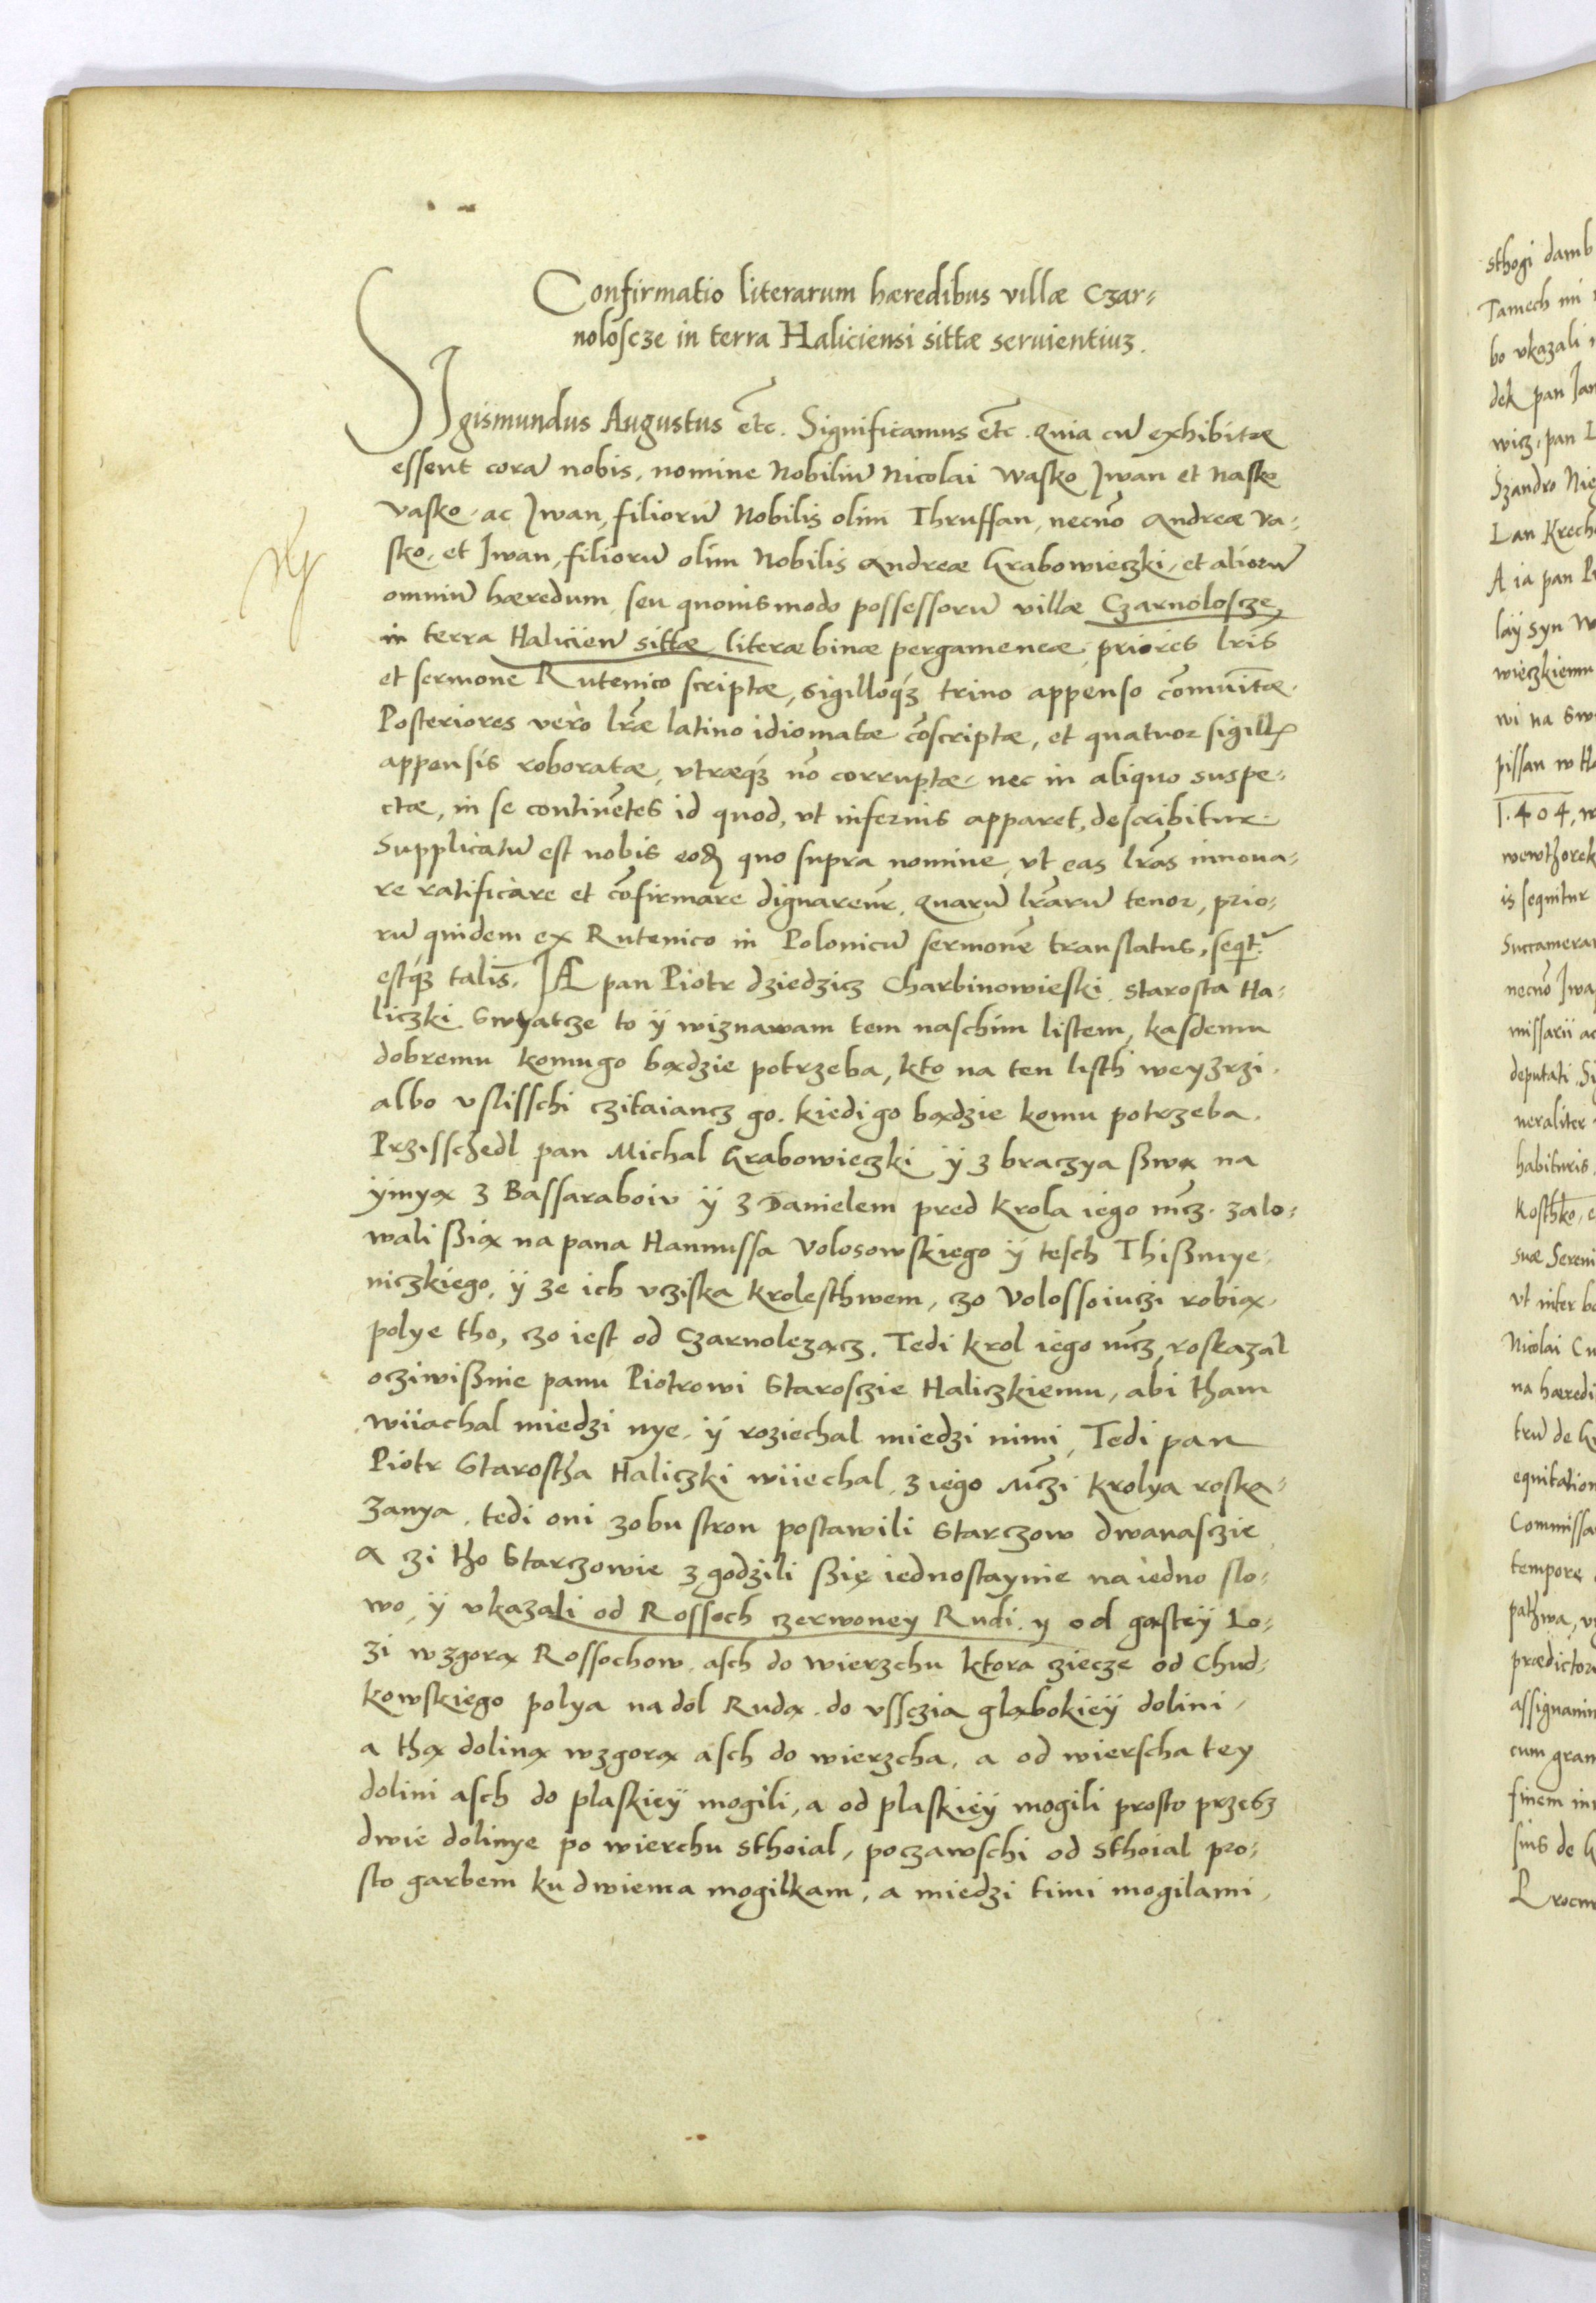 Confirmatio literarum hæredibus villæ Czar=
nolosceze in terra Haliciensi sittæ seruientiuȝ.
SIgismundus Augustus etc̃. Significamus etc̃. quia cũ exhibitæ
essent corã nobis, nomine Nobiliũ Nicolai Wasko Jwan et Nasko
Vasko, ac Jwan, filiorũ Nobilis olim Thrussan, necnõ Andreæ Va=
sko, et Jwan, filiorũ olim Nobilis Andreæ Grabowieczki, et aliorũ
omniũ hæredum seu quouismodo possessorũ villæ Czarnolosczе
in terra Halicieñ sittæ, literæ binæ pergameneæ, priores lr̃is
et sermone Rutenico scriptæ, sigilloqȝ trino appenso cõmuñitæ.
Posteriores verò lr̃æ latino idiomatæ cõscriptæ, et quatuor sigill̃
appensis roboratæ, vtræqȝ nõ corruptæ, nec in aliquo suspe=
ctæ, in se continẽtes id quod, vt inferius apparet, describitur.
Supplicatũ est nobis eođ quo supra nomine, vt eas lr̃as innoua=
re ratificare et cõfirmare dignaremr̃. Quarũ lr̃arũ tenor, prio=
rũ quidem ex Rutenico in Polonicũ sermonẽ translatus, seqt̃r
estqȝ talis. JA pan Piotr dziedzicz Charbinowieski starosta Ha=
liczki Swyatcze to ÿ wiznawam tem naschim listem, kasdemu
dobremu komugo bądzie potrzeba, kto na ten listh weyzrzi.
albo vslisschi czitaiancz go. kiedi go bądzie komu potrzeba.
Przisschedl pan Michal Grabowieczki ÿ z braczya ßwą na
ÿmyą z Bassaraboiv ÿ z Danielem pred Krola iego mc̃z. zalo=
wali ßią na pana Hannussa Volosowskiego ÿ tesch Thißmye=
niczkiego, ÿ ze ich vcziska Krolesthwem, czo Volossoiuczi robią
polye tho, czo iest od Czarnolezącz. Tedi Krol iego mc̃z, roskazal
oczwißnie panu Piotrowi Starosczie Haliczkiemu, abi tham
wiiachal miedzi nye, ÿ roziechal miedzi nimi, Tedi pan
Piotr Starostha Haliczki wiiechal, z iego Mc̃zi Krolya roska=
zanya, tedi oni zobu stron postawili Starczow dwanasczie
A czi tho Starczowie zgodzili ßię iednostaynie na iedno slo=
wo, ÿ vkazali od Rossoch czerwoney Rudi, y od gąstëÿ Lo=
zi wzgorą Rossochow, asch do wierzchu ktora ziecze od Chud=
kowskiego polya na dol Rudą, do vssczia gląbokieÿ dolini,
a thą doliną wzgorą asch do wierzcha, a od wierscha tey
dolini asch do plaskieÿ mogili, a od plaskieÿ mogili prosto przesz
dwie dolinye po wierchu sthoial, poczawschi od sthoial pro=
sto garbem ku dwiema mogilkam, a miedzi timi mogilami,
sthogi damb
Tamech mi
bo vkazali
dek pan Jan
wicz, pan
Szandro Nie
Lan Krech
A ia pan P
laÿ syn W
wieczkiemu
wi na sw
pissan w
1.404, w
wewthorek
is sequitur
Succamera
necnõ Jwa
missarii ac
deputati. Si
neraliter
habituris,
Kosthko, e
suæ Sereni
vt inter
Nicolai Cu
na hæredi
trũ de
equitation
Commissa
tempore
pathwa, v
prædictor
assignanin
cum gran
finem in
suis de